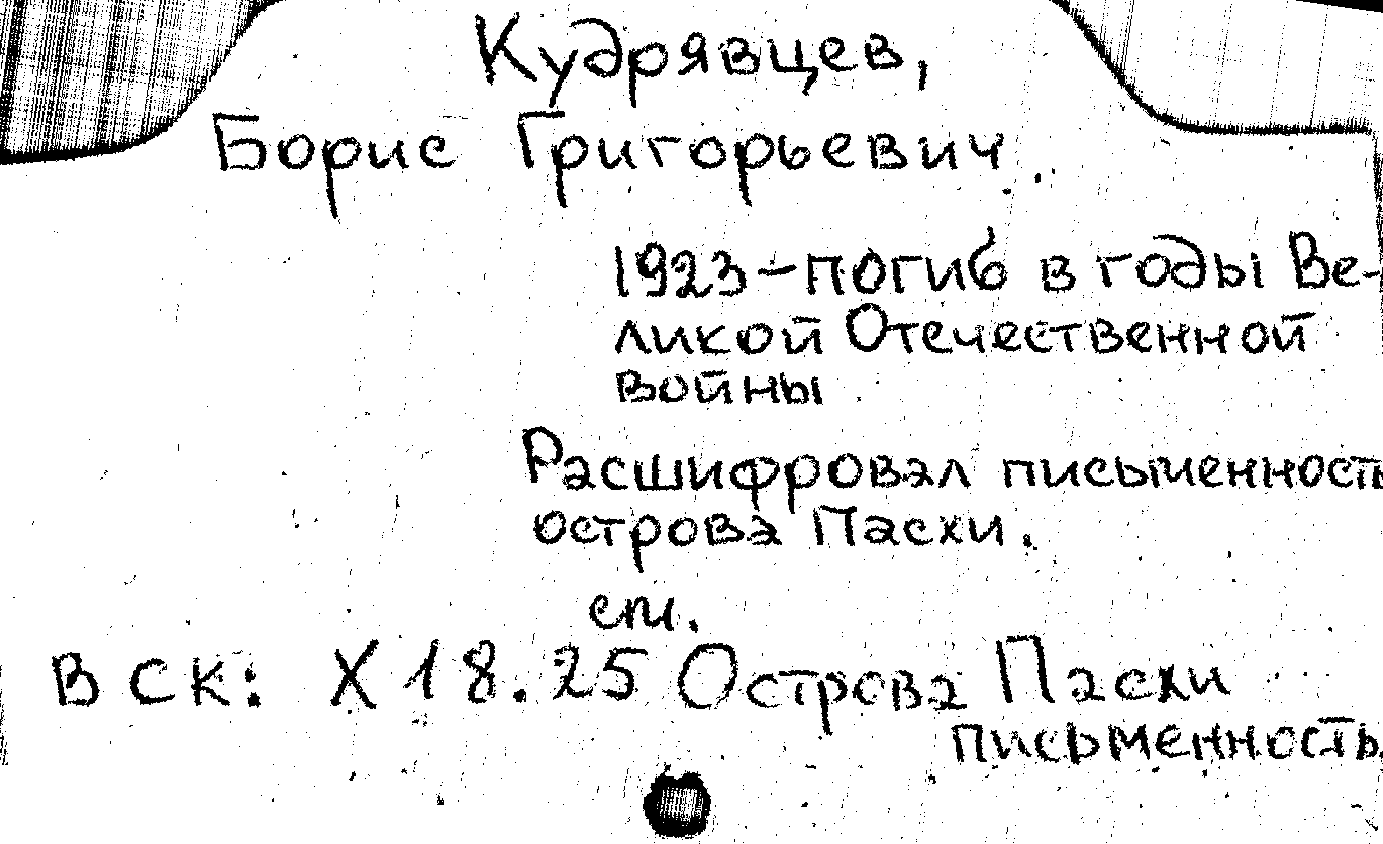 Кудрявцев,
Борис Григорьевич.
1923-погиб в годы Ве-
ликой Отечественной
войны
Расшифровал письменность
острова Пасхи.
см.
В СК: Х 18.25 Острова Пасхи
письменность